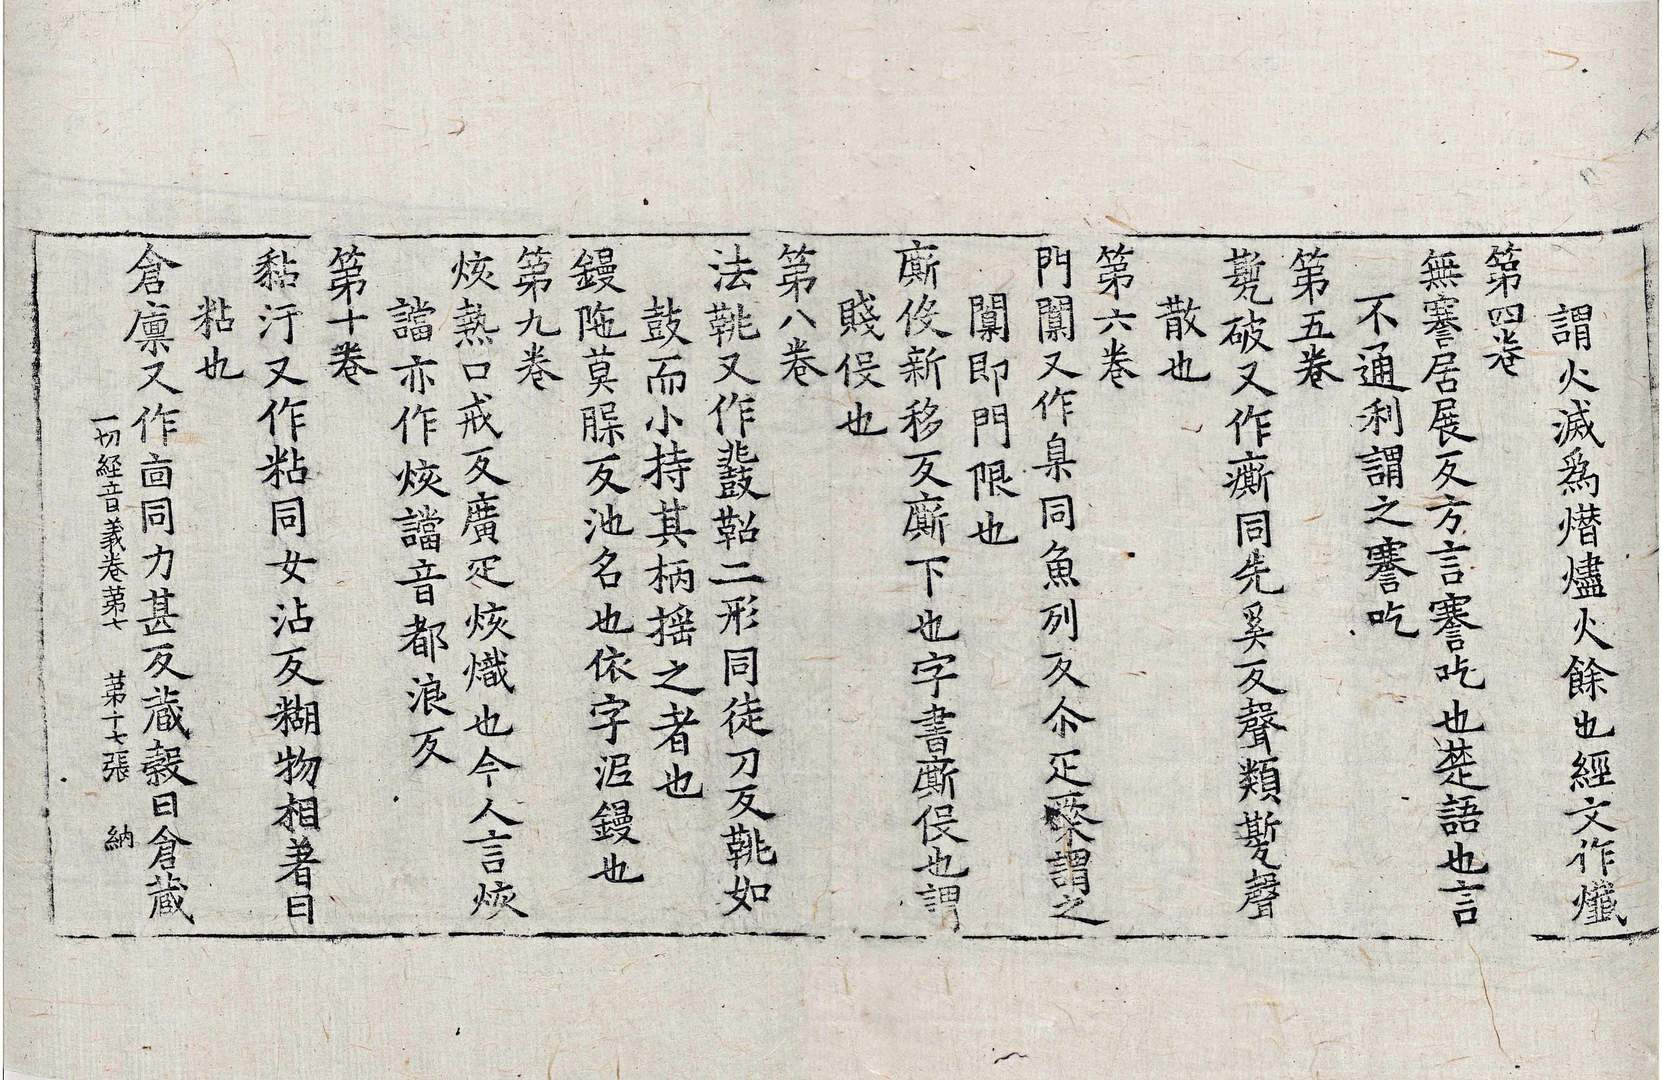 謂火滅為熸燼火餘也經文作㸅
第四卷
無謇居展反方言謇吃也楚語也言
不通利謂之謇吃
第五卷
甈破又作㾷同先奚反聲類甈聲
散也
第六卷
門闑又作臬同魚列反尒疋橜謂之
闑即門限也
廝伇新移反廝下也字書廝伇也謂
賤伇也
第八卷
法鞉又作鼗鞀二形同徒刀反鞉如
鼓而小持其柄搖之者也
鏝陁莫腜反池名也依字泥鏝也
第九卷
烗熱口戒反廣疋烗熾也今人言烗
譡亦作烗譡音都浪反
第十卷
黏汙又作粘同女沾反糊物相著曰
粘也
倉廩又作㐭同力甚反蔵穀曰倉蔵
一切經音義卷苐七 苐十七張 納